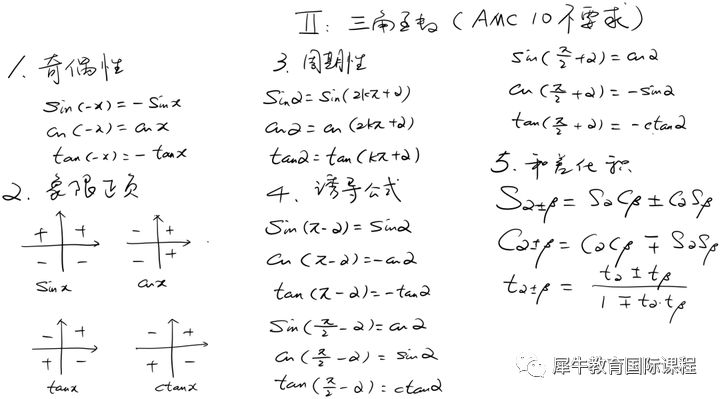 II: 三角函数 (AMC 10不要求)
1. 奇偶性
sin(-x) = -sinx
cos(-x) = cosx
tan(-x) = -tanx
2. 象限正负
+ +
- -
sinx
- +
- +
cosx
- +
+ -
tanx
- +
+ -
ctanx
3. 周期性
sinα = sin(2kπ+α)
cosα = cos(2kπ+α)
tanα = tan(kπ+α)
4. 诱导公式
sin(π-α) = sinα
cos(π-α) = -cosα
tan(π-α) = -tanα
sin(π/2-α) = cosα
cos(π/2-α) = sinα
tan(π/2-α) = ctanα
sin(π/2+α) = cosα
cos(π/2+α) = -sinα
tan(π/2+α) = -ctanα
5. 和差化积
Sα±β = SαCβ ± CαSβ
Cα±β = CαCβ ∓ SαSβ
tα±β = (tα ± tβ)/(1 ∓ tα·tβ)
犀牛教育国际课程